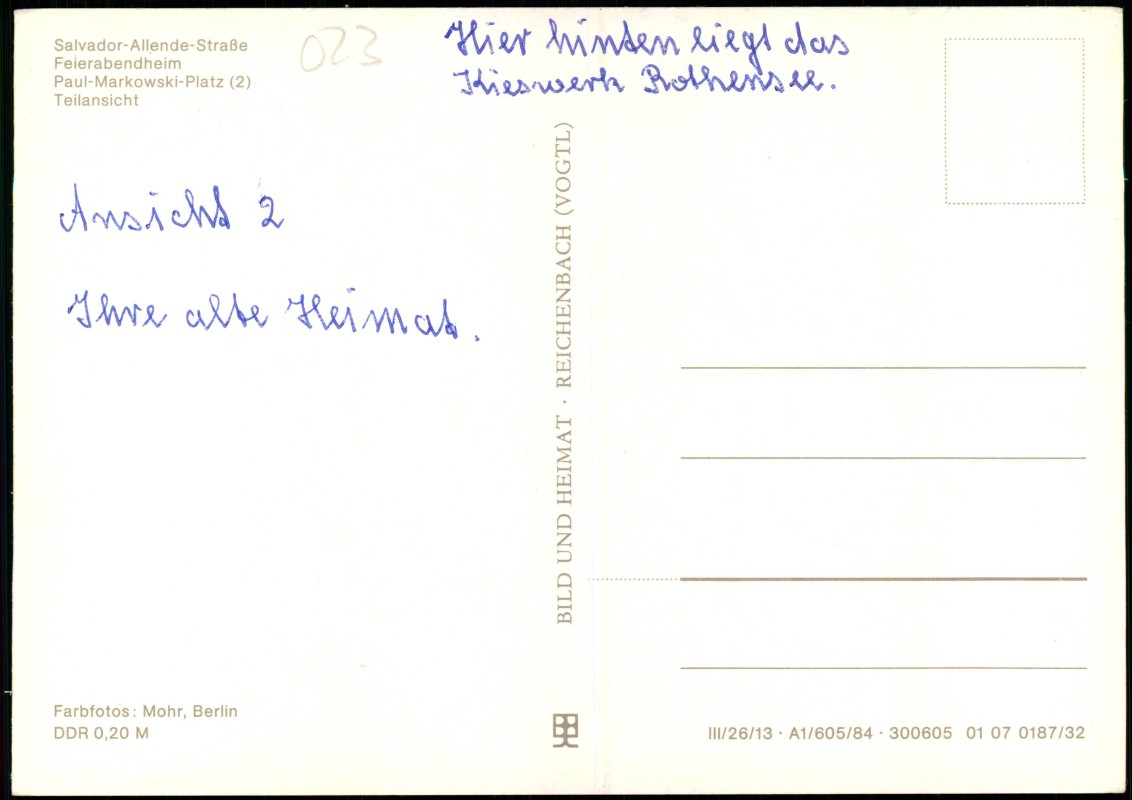 Salvador-Allende-Straße
Feierabendheim
Paul-Markowski-Platz (2)
Teilansicht
023
Hier hinten liegt das
Kieswerk Rothensee.
Ansicht 2
Ihre alte Heimat.
BILD UND HEIMAT · REICHENBACH (VOGTL)
Farbfotos: Mohr, Berlin
DDR 0,20 M
III/26/13 · A1/605/84 · 300605 01 07 0187/32